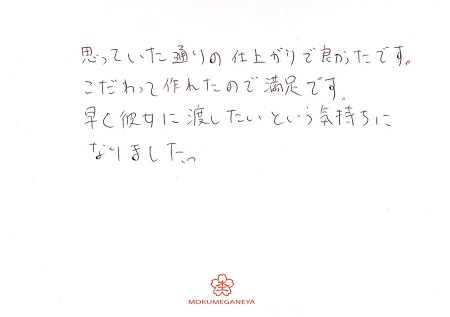 思っていた通りの仕上がりで良かったです。
こだわって作れたので満足です。
早く彼女に渡したいという気持ちに
なりました。
MOKUMEGANEYA